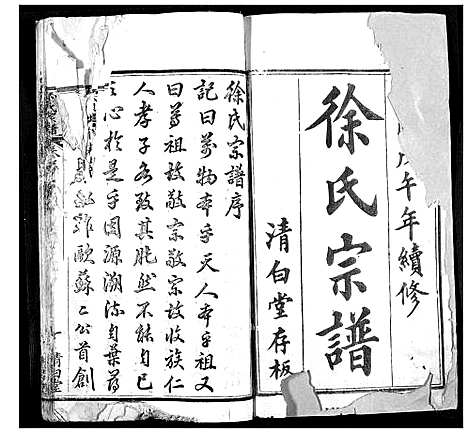 戊午年續修
徐氏宗譜
清白堂存板
徐氏宗譜序
記曰萬物本乎天人本乎祖又
曰尊祖故敬宗敬宗故收族仁
人孝子各致其脱然不能自已
之心於是乎因源溯流自葉尋
歐蘇二公首創
清白堂